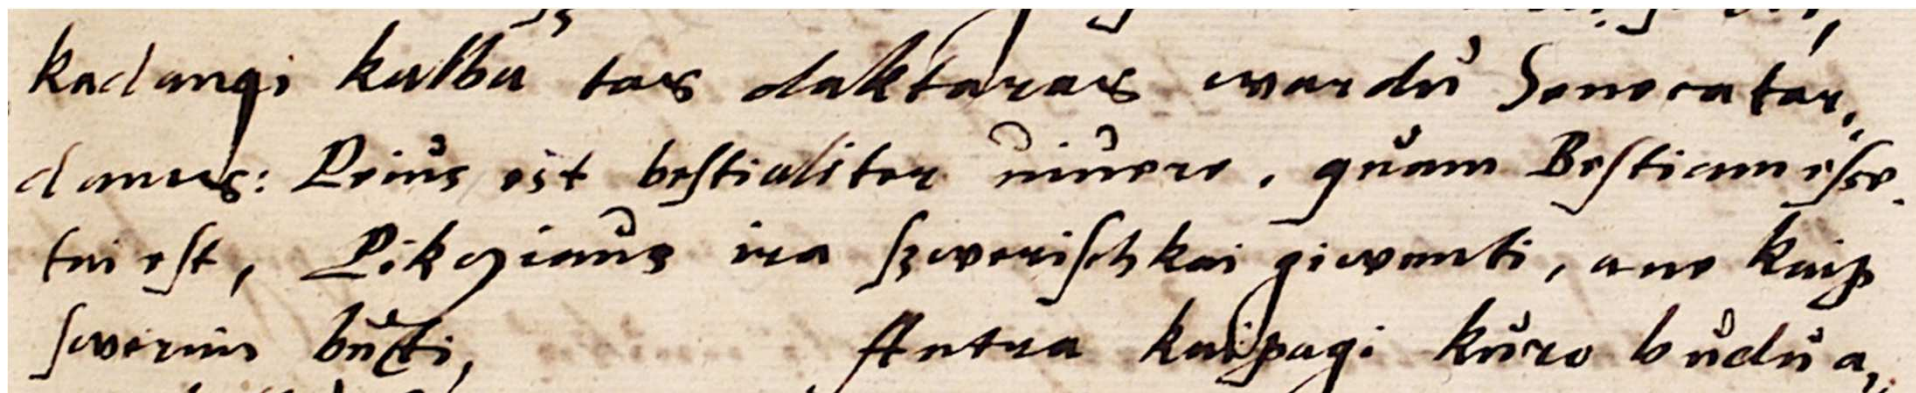 kadangi kalba tas daktaras wardu Senecatar,
damas: Peius est bestialiter uiuere, quam Bestiam esse.
tai est, Pikcziaus ira szwerischkai giwenti, ane kaip
szwerimi buti, Antra kaipagi kuro budu a,